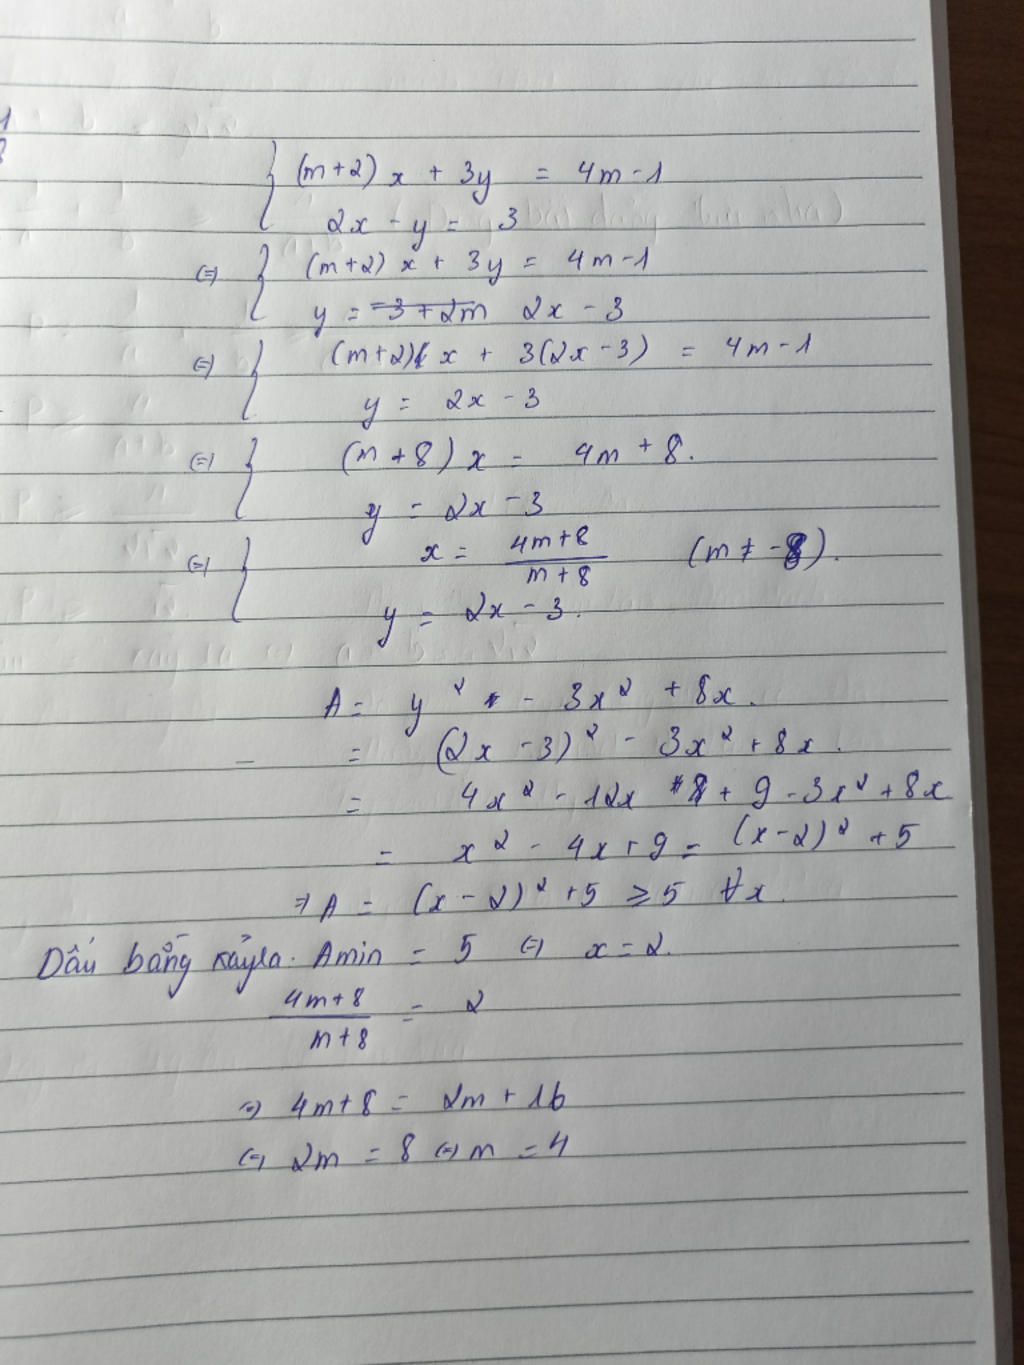 (m+2) x + 3y = 4m-1
2x - y = 3
(=) (m+2) x + 3y = 4m-1
y = -3 + 2m 2x - 3
(=) (m+2) x + 3(2x-3) = 4m-1
y = 2x - 3
(=) (m+8) x = 4m + 8.
y = 2x - 3
(=) x = \frac{4m+8}{m+8} (m ≠ -8).
y = 2x - 3.
A = y² - 3x² + 8x.
= (2x - 3)² - 3x² + 8x.
= 4x² - 12x + 9 - 3x² + 8x
= x² - 4x + 9 = (x-2)² + 5
⇒ A = (x-2)² + 5 ≥ 5 ∀x.
Dấu bằng xảy ra. Amin = 5 (=) x = 2.
\frac{4m+8}{m+8} = 2
=) 4m+8 = 2m + 16
(=) 2m = 8 (=) m = 4